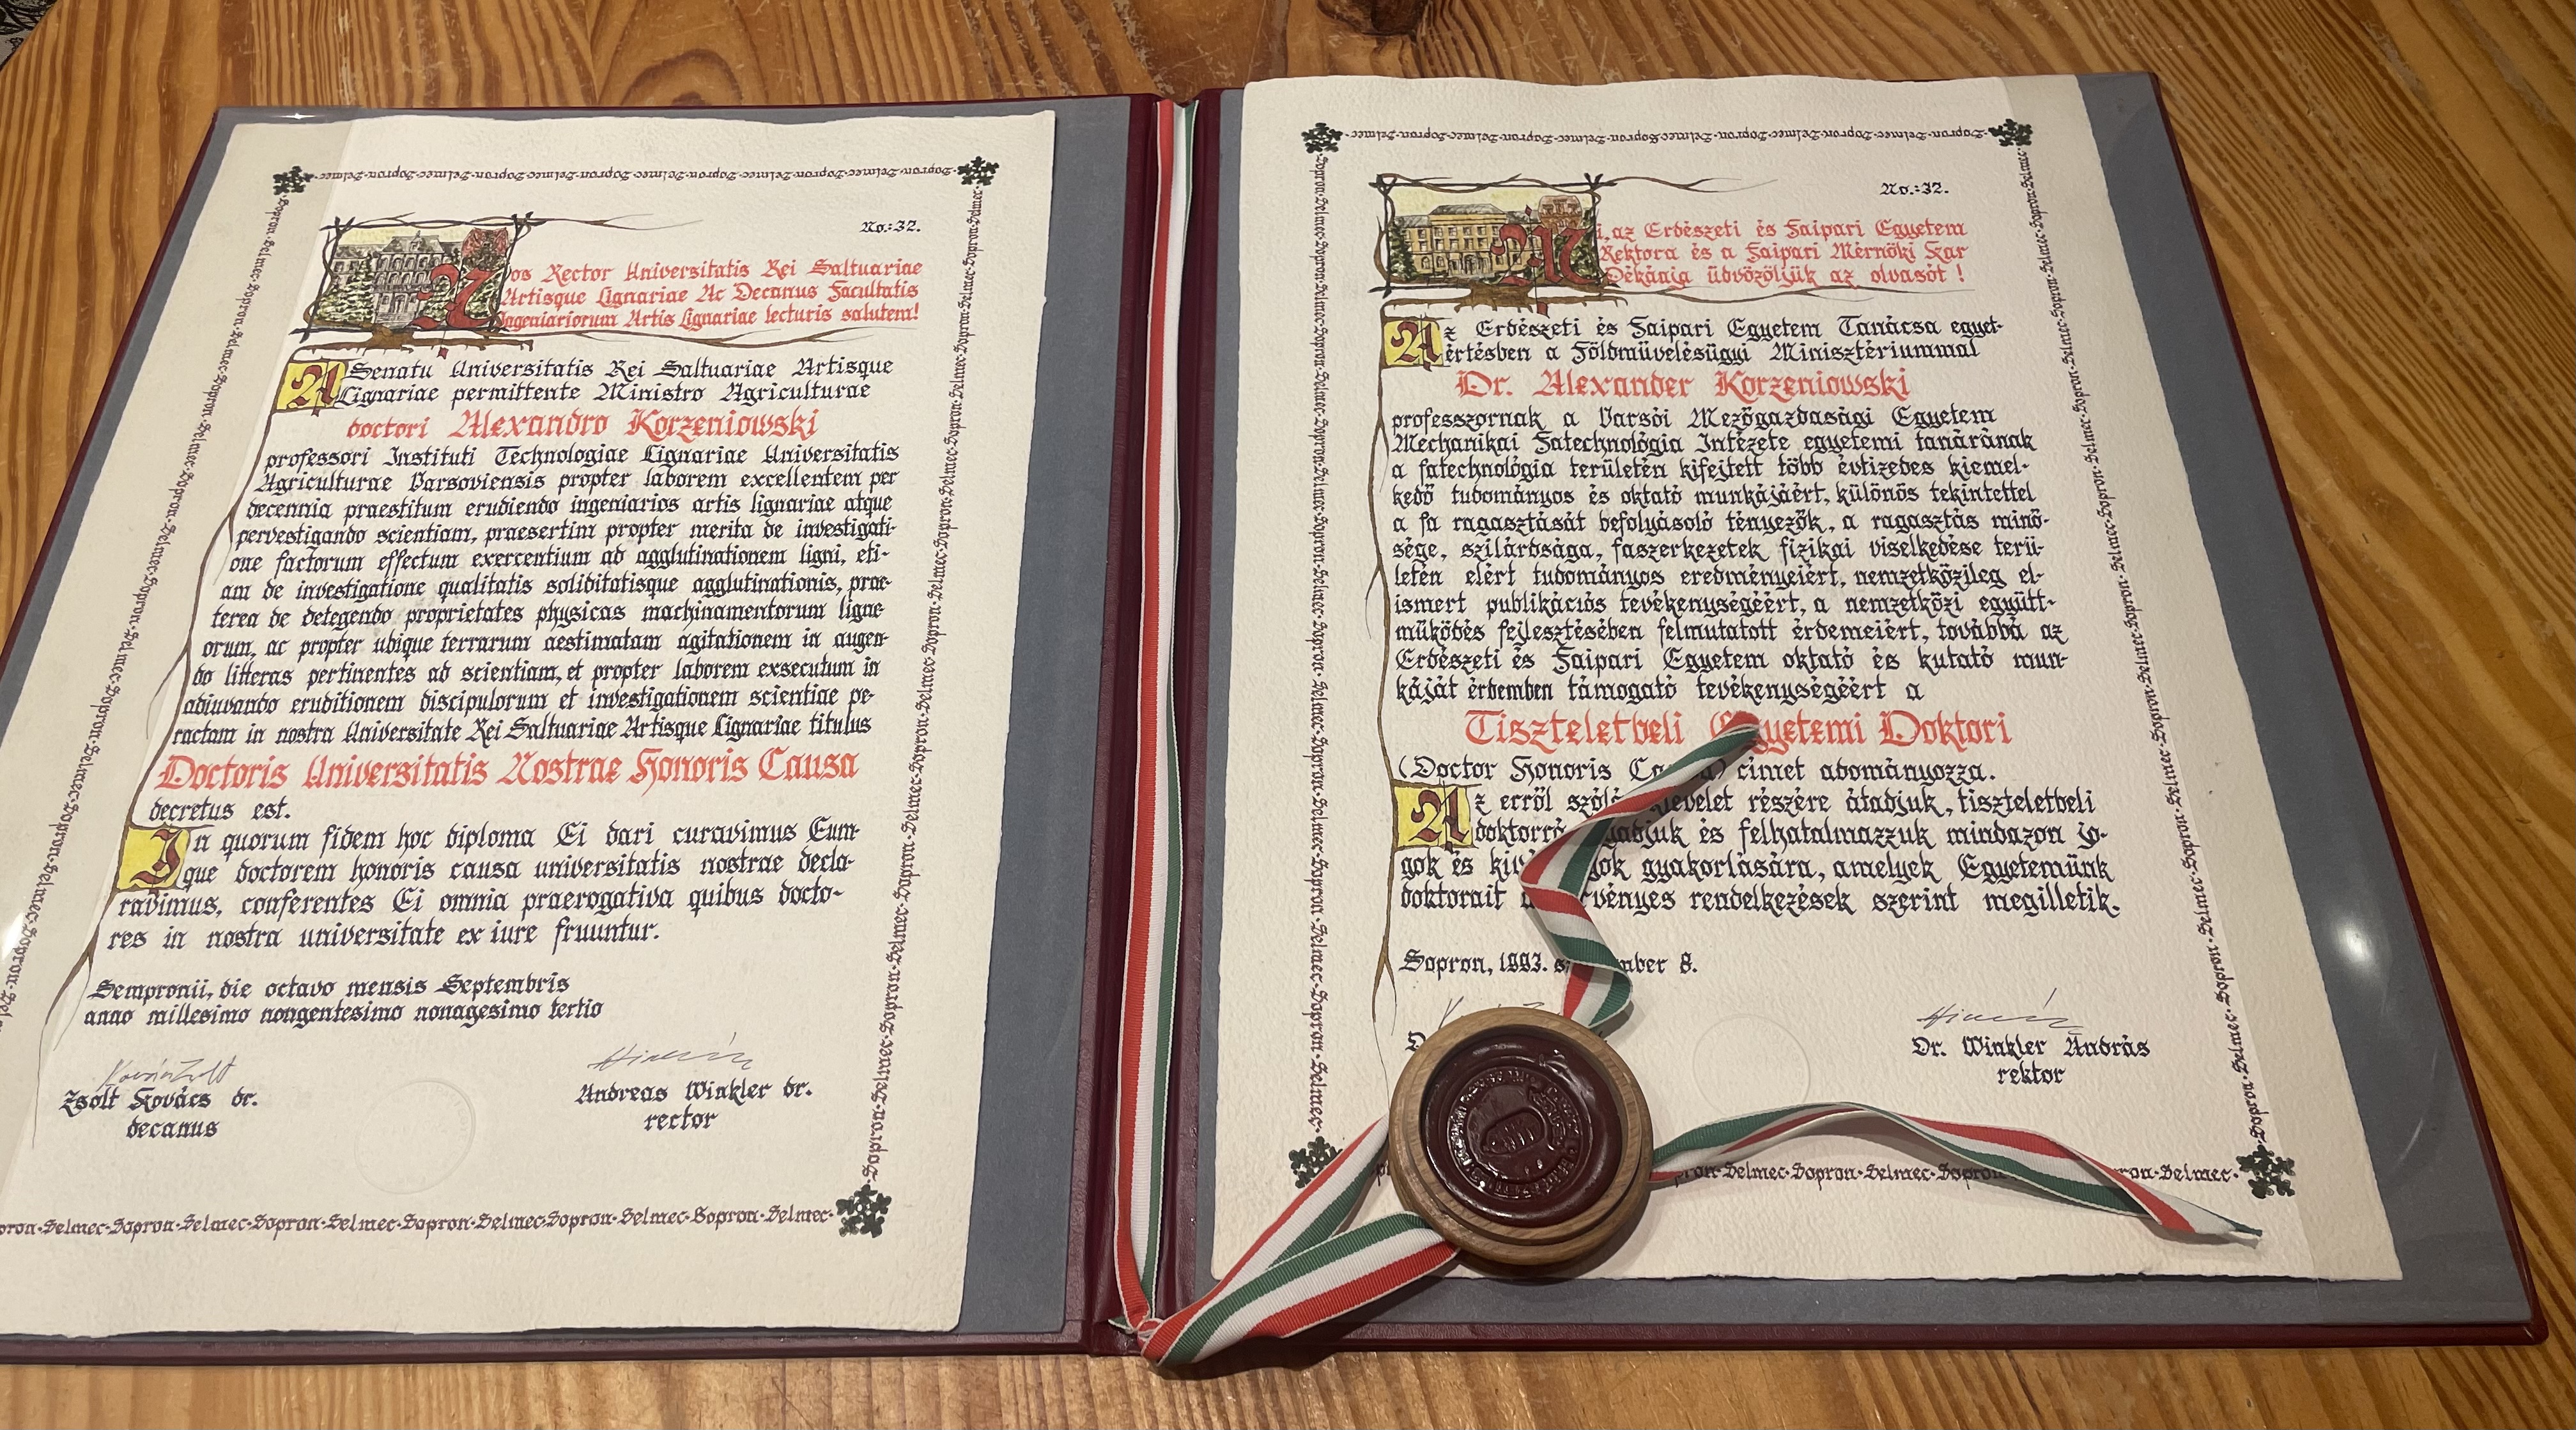 No.: 32.
Nos Rector Universitatis Rei Saltuariae
Artisque Lignariae Ac Decanus Facultatis
Ingeniariorum Artis Lignariae lecturis salutem!
A Senatu Universitatis Rei Saltuariae Artisque
Lignariae permittente Ministro Agriculturae
doctori Alexandro Korzeniowski
professori Instituti Technologiae Lignariae Universitatis
Agriculturae Varsoviensis propter laborem excellentem per
decennia praestitum erudiendo ingeniarios artis lignariae atque
pervestigando scientiam, praesertim propter merita de investigati-
one factorum effectum exercentium ad agglutinationem ligni, eti-
am de investigatione qualitatis soliditatisque agglutinationis, prae-
terea de detegendo proprietates physicas machinamentorum ligne-
orum, ac propter ubique terrarum aestimatam agitationem in augen-
do litteras pertinentes ad scientiam, et propter laborem exsecutum in
adiuvando eruditionem discipulorum et investigationem scientiae pe-
ractam in nostra Universitate Rei Saltuariae Artisque Lignariae titulus
Doctoris Universitatis Nostrae Honoris Causa
decretus est.
In quorum fidem hoc diploma Ei dari curavimus Eum-
que doctorem honoris causa universitatis nostrae decla-
ravimus, conferentes Ei omnia praerogativa quibus docto-
res in nostra universitate ex iure fruuntur.
Sempronii, die octavo mensis Septembris
anno millesimo nongentesimo nonagesimo tertio
Kovács Zsolt
Zsolt Kovács dr.
decanus
Andreas Winkler dr.
rector
Sopron·Selmec·Sopron·Selmec·Sopron·Selmec·Sopron·Selmec·Sopron·Selmec·Sopron·Selmec·
No.: 32.
Mi, az Erdészeti és Faipari Egyetem
Rektora és a Faipari Mérnöki Kar
Dékánja üdvözöljük az olvasót!
Az Erdészeti és Faipari Egyetem Tanácsa egyet-
értésben a Földművelésügyi Minisztériummal
Dr. Alexander Korzeniowski
professzornak a Varsói Mezőgazdasági Egyetem
Mechanikai Fatechnológia Intézete egyetemi tanárának
a fatechnológia területén kifejtett több évtizedes kiemel-
kedő tudományos és oktató munkájáért, különös tekintettel
a fa ragasztását befolyásoló tényezők, a ragasztás minő-
sége, szilárdsága, faszerkezetek fizikai viselkedése terü-
letén elért tudományos eredményeiért, nemzetközileg el-
ismert publikációs tevékenységéért, a nemzetközi együtt-
működés fejlesztésében felmutatott érdemeiért, továbbá az
Erdészeti és Faipari Egyetem oktató és kutató mun-
káját érdemben támogató tevékenységéért a
Tiszteletbeli Egyetemi Doktori
(Doctor Honoris Causa) címet adományozza.
Az erről szóló oklevelet részére átadjuk, tiszteletbeli
doktorrá fogadjuk és felhatalmazzuk mindazon jo-
gok és kiváltságok gyakorlására, amelyek Egyetemünk
doktorait a törvényes rendelkezések szerint megilletik.
Sopron, 1993. szeptember 8.
Dr. Winkler András
rektor
Sopron·Selmec·Sopron·Selmec·Sopron·Selmec·